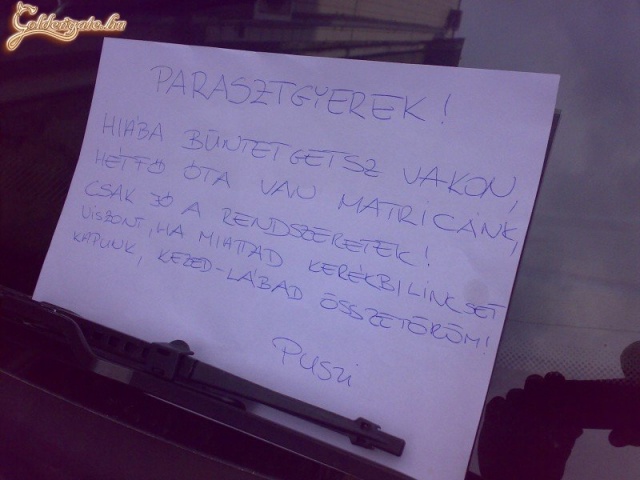 Goldengate.hu
PARASZTGYEREK!
HIÁBA BÜNTETGETSZ VAKON,
HÉTFŐ ÓTA VAN MATRICÁNK,
CSAK JÓ A RENDSZERETEK!
VISZONT, HA MIATTAD KERÉKBILINCSET
KAPUNK, KEZED-LÁBAD ÖSSZETÖRÖM!
PUSZI